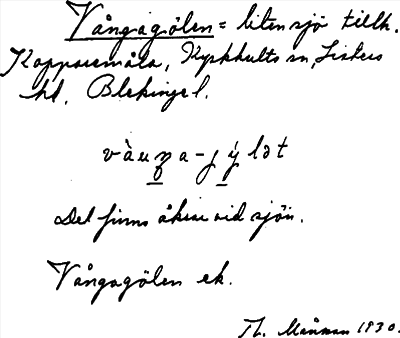 Vångagölen = liten sjö tillh.
Kopparemåla, Kyrkhults sn, Listers
hd. Blekinge l.
vàuŋa-jýlət
Det finns åkrar vid sjön.
Vångagölen ek.
Th. Månman 1930.